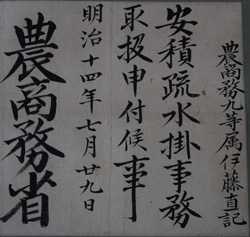 農商務九等属伊藤直記
安積疏水掛事務
取扱申付候事
明治十四年七月廿九日
農商務省